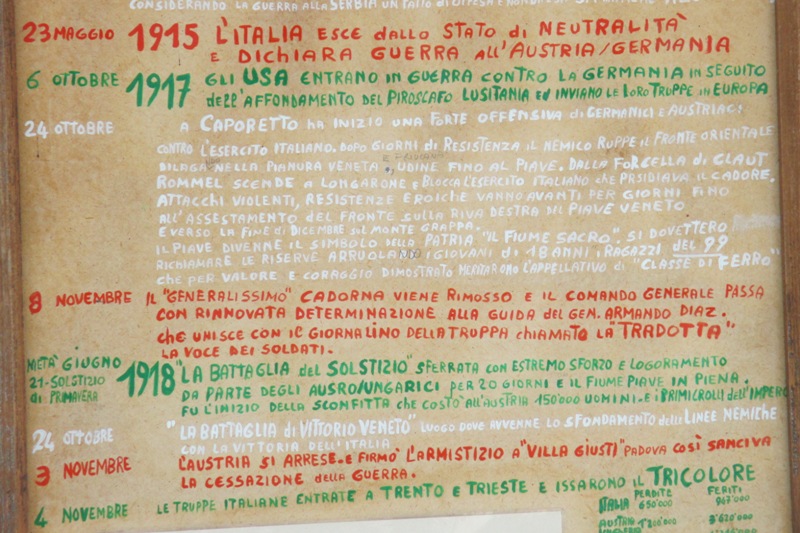 CONSIDERANDO LA GUERRA ALLA SERBIA UN PATTO DI OFFESA E NON
23 MAGGIO 1915 L'ITALIA ESCE dallo STATO di NEUTRALITÀ
E DICHIARA GUERRA all'AUSTRIA/GERMANIA
6 OTTOBRE 1917 GLI USA ENTRANO IN GUERRA CONTRO LA GERMANIA IN SEGUITO
dell'AFFONDAMENTO DEL PIROSCAFO LUSITANIA ED INVIANO LE LORO TRUPPE IN EUROPA
24 OTTOBRE A CAPORETTO HA INIZIO UNA FORTE OFFENSIVA DI GERMANICI E AUSTRIACI
CONTRO L'ESERCITO ITALIANO. DOPO GIORNI di RESISTENZA IL NEMICO RUPPE IL FRONTE ORIENTALE
E FRIULANA
DILAGA NELLA PIANURA VENETA UDINE FINO AL PIAVE. DALLA FORCELLA di CLAUT
ROMMEL SCENDE A LONGARONE E BLOCCA L'ESERCITO ITALIANO che PRSIDIAVA IL CADORE.
ATTACCHI VIOLENTI, RESISTENZE EROICHE VANNO AVANTI PER GIORNI FINO
ALL'ASSESTAMENTO DEL FRONTE SULLA RIVA DESTRA del PIAVE VENETO
E VERSO LA FINE DI DICEMBRE SUL MONTE GRAPPA.
IL PIAVE DIVENNE IL SIMBOLO DELLA PATRIA "IL FIUME SACRO". SI DOVETTERO
RICHIAMARE LE RISERVE ARRUOLANDO I GIOVANI di 18 ANNI i RAGAZZI DEL 99
CHE PER VALORE E CORAGGIO DIMOSTRATO MERITARONO L'APPELLATIVO di "CLASSE DI FERRO"
8 NOVEMBRE IL "GENERALISSIMO" CADORNA VIENE RIMOSSO E IL COMANDO GENERALE PASSA
CON RINNOVATA DETERMINAZIONE ALLA GUIDA DEL GEN. ARMANDO DIAZ.
che UNISCE CON IL GIORNALINO DELLA TRUPPA CHIAMATO LA "TRADOTTA"
LA VOCE DEI SOLDATI.
METÀ GIUGNO 1918 "LA BATTAGLIA del SOLSTIZIO" SFERRATA CON ESTREMO SFORZO E LOGORAMENTO
21-SOLSTIZIO DA PARTE DEGLI AUSRO/UNGARICI PER 20 GIORNI E IL FIUME PIAVE IN PIENA.
di PRIMAVERA FU L'INIZIO DELLA SCONFITTA che COSTÒ ALL'AUSTRIA 150'000 UOMINI-E i PRIMI CROLLI dell'IMPERO
24 OTTOBRE "LA BATTAGLIA di VITTORIO VENETO" LUOGO DOVE AVVENNE LO SFONDAMENTO delle LINEE NEMICHE
CON LA VITTORIA DELL'ITALIA
3 NOVEMBRE L'AUSTRIA SI ARRESE-E FIRMÒ L'ARMISTIZIO A "VILLA GIUSTI" PADOVA COSÌ SANCIVA
LA CESSAZIONE DELLA GUERRA.
4 NOVEMBRE LE TRUPPE ITALIANE ENTRATE A TRENTO E TRIESTE E ISSARONO IL TRICOLORE
PERDITE FERITI
ITALIA 650'000 947'000
AUSTRIA 1'200'000 3'620'000